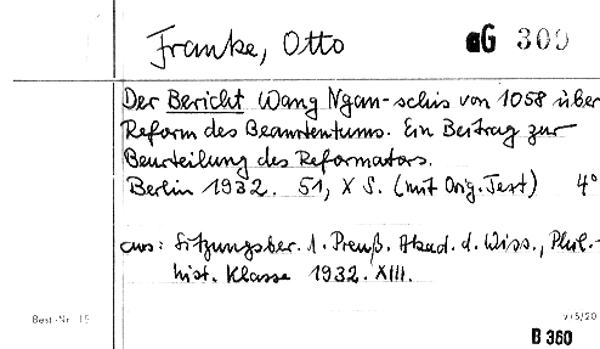 Franke, Otto aG 300
Der Bericht Wang Ngan-schis von 1058 über
Reform des Beamtentums. Ein Beitrag zur
Beurteilung des Reformators.
Berlin 1932. 51, X S. (mit Orig. Text) 4°
aus: Sitzungsber. d. Preuß. Akad. d. Wiss., Phil.-
hist. Klasse 1932. XIII.
Best.-Nr. 15 V/5/20
B 360